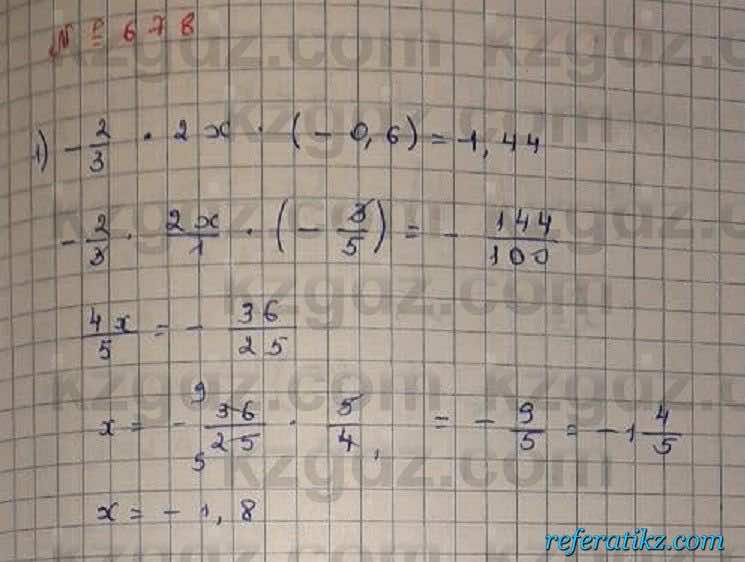 № 678
1) - 2/3 · 2x · (-0,6) = -1,44
- 2/3 · 2x/1 · (- 3/5) = - 144/100
4x/5 = - 36/25
x = - 36/25 · 5/4, = - 9/5 = -1 4/5
9
5
x = -1,8
kzgdz.com
referatikz.com